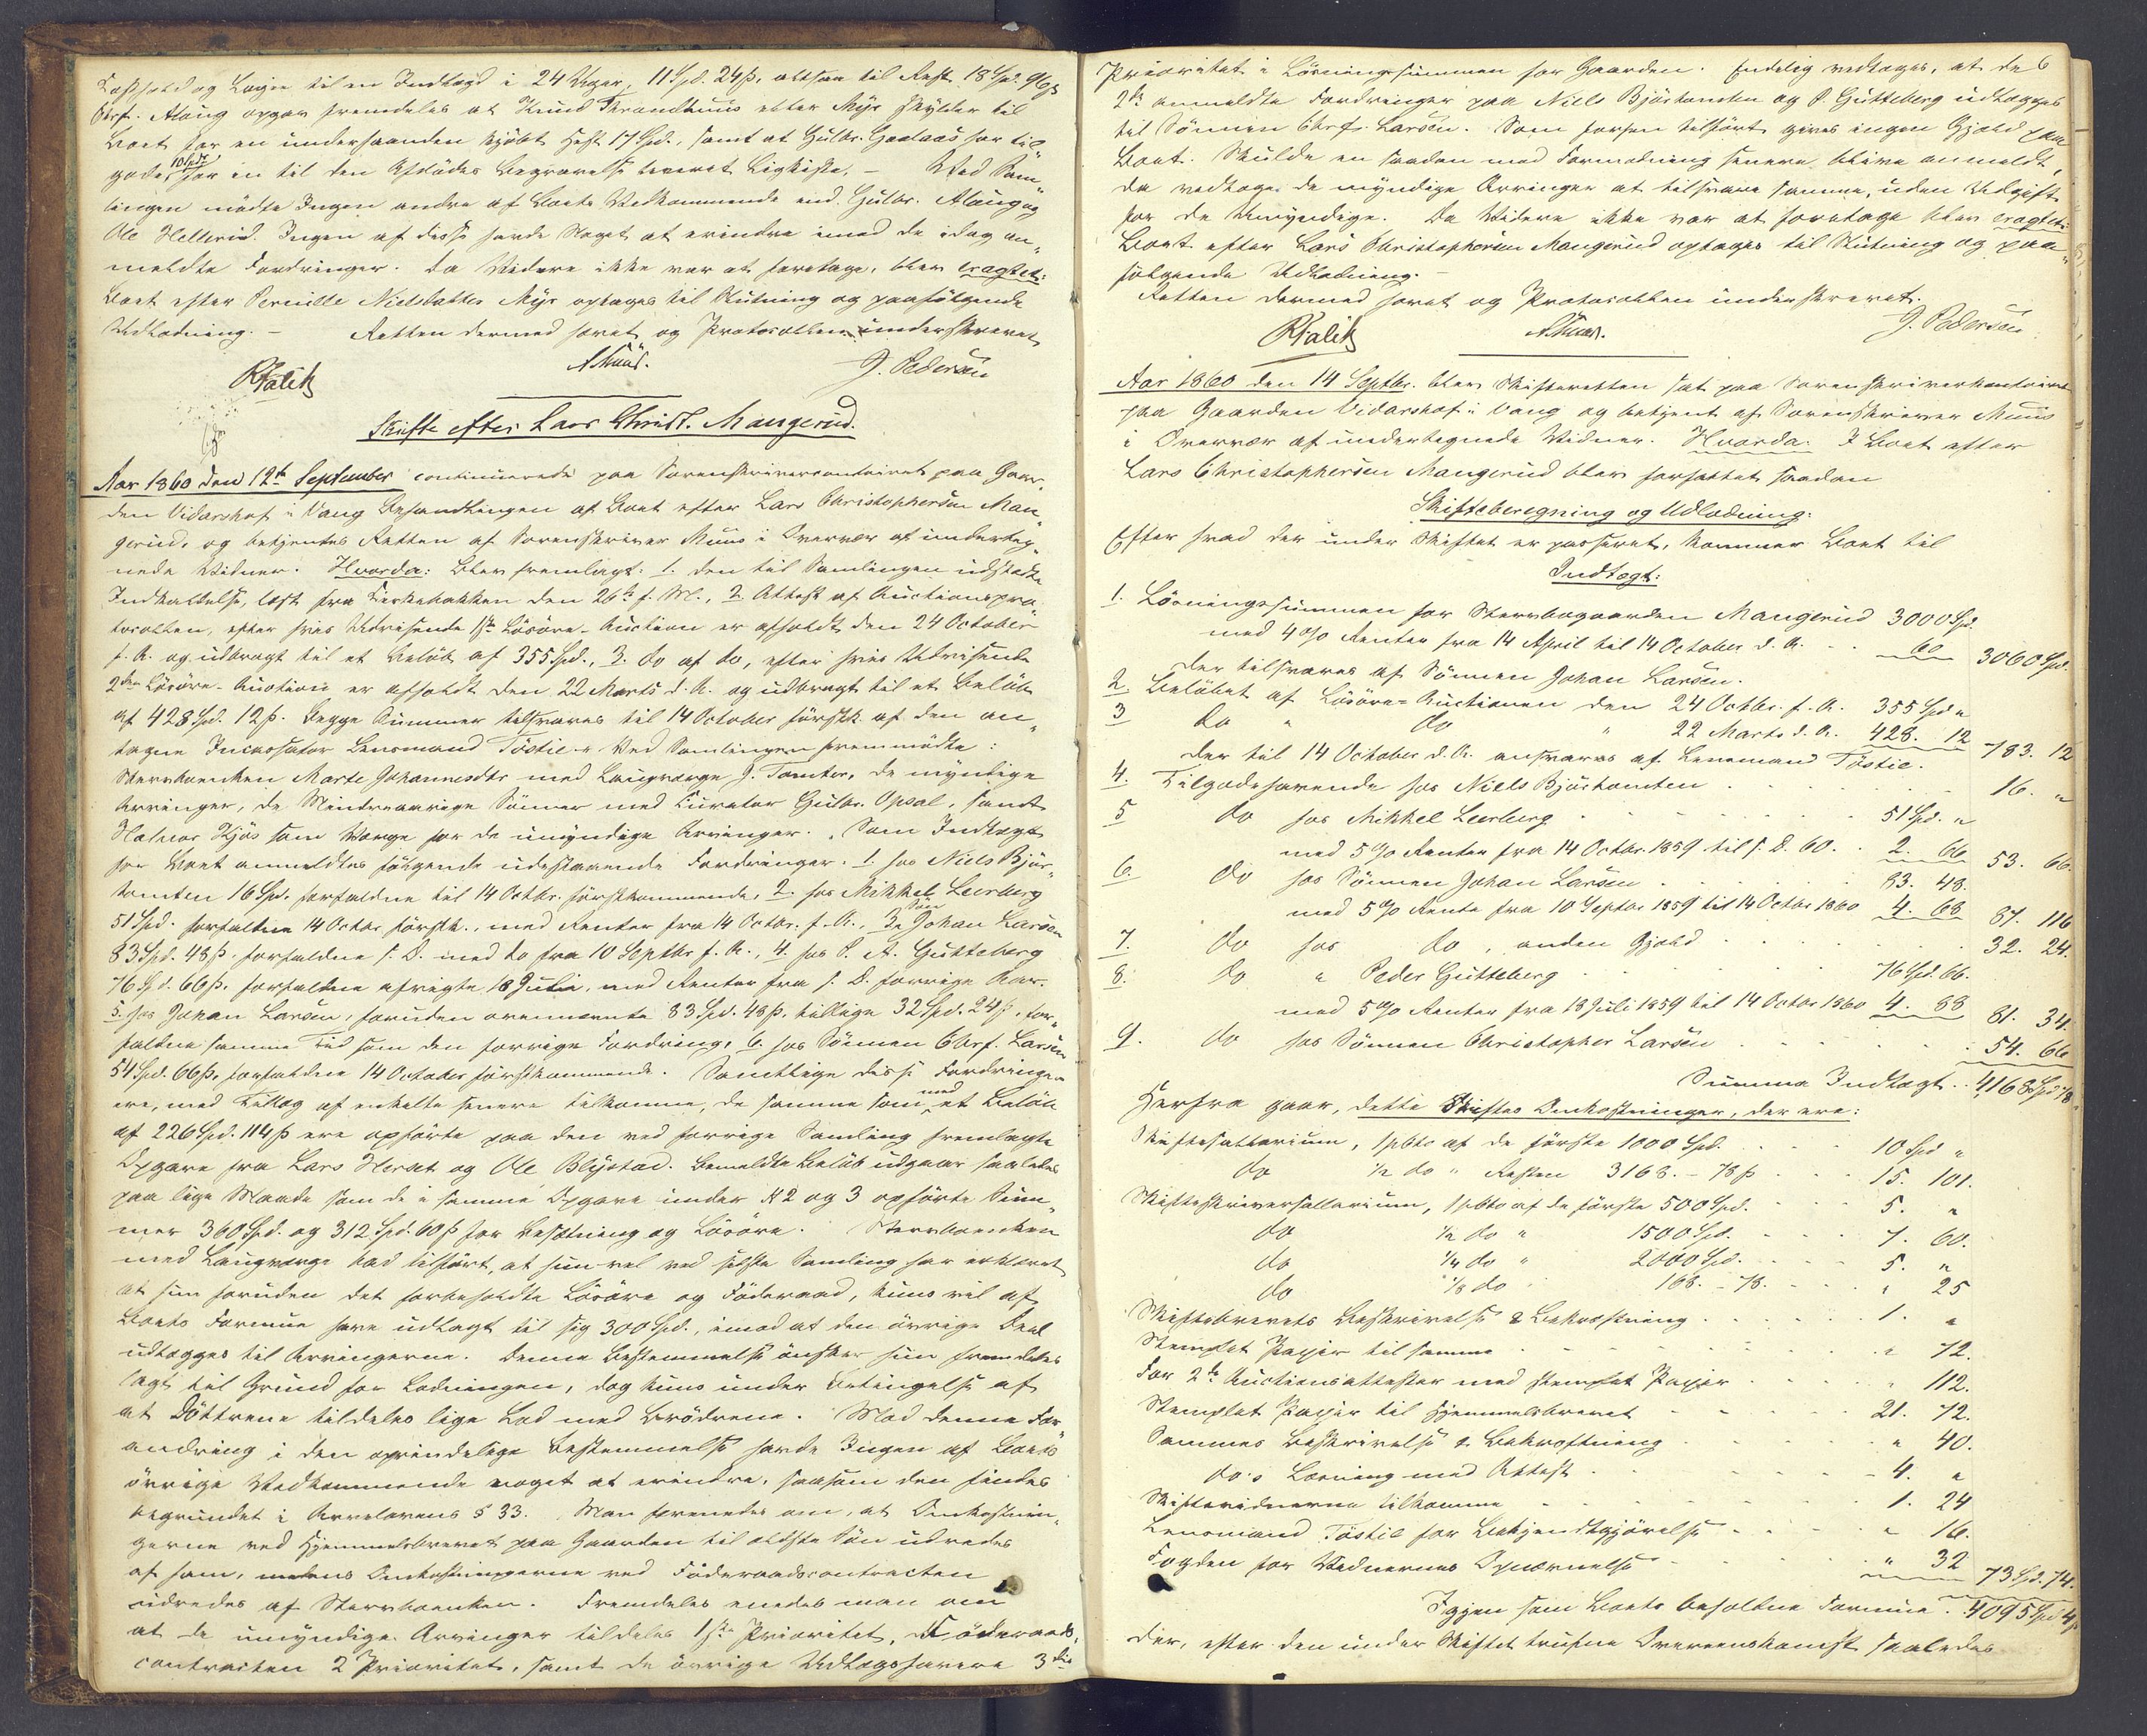 Kosthold og Losie til en Indlagd i 24 Uger, 11 Spd. 24 ß, altsaa til Rest 18 Spd. 96 ß
Chrf. Alaug opgav fremdeles at Knud Strandhuus efter Myr skylder til
Boet for en underhaanden kjöbt Hest 17 Spd., samt at Gulbr. Gaalaas har til„
gode 10 Spd. for en til den Afdödes Begravelse leveret Ligkiste. – Ved Sam„
lingen mödte Ingen andre af Boets Vedkommende end Gulbr. Alaug og
Ole Hellerud. Ingen af disse havde Noget at erindre imod de idag an„
meldte Fordringer. Da Videre ikke var at foretage, blev eragtet:
Boet efter Pernille Nielsdatter Myr optages til Slutning og paafölgende
Udlodning. – Retten dermed hævet og Protocollen underskrevet
RFalck AMuus. J. Pedersen
Skifte efter Lars Christ. Mangerud.
Aar 1860 den 12te September continuerede paa Sorenskrivercontoiret paa Gaar„
den Vidarshof i Vang Behandlingen af Boet efter Lars Christophersen Man„
gerud, og betjentes Retten af Sorenskriver Muus i Overvær af underteg„
nede Vidner. Hvorda: Blev fremlagt: 1. den til Samlingen udstedte
Indkaldelse, læst fra Kirkebakken den 26de f. M., 2. Attest af Auctionspro„
tocollen, efter hvis Udvisende 1ste Lösöre-Auction er afholdt den 24 October
f. A. og udbragt til et Belöb af 355 Spd., 3. do af do, efter hvis Udvisende
2den Lösöre-Auction er afholdt den 22 Marts d. A. og udbragt til et Belöb
af 428 Spd. 12 ß. Begge Summer tilsvares til 14 October förstk. af den an„
tagne Incassator Lensmand Töstie. – Ved Samlingen fremmödte:
Stervboenken Marte Johannesdtr med Laugværge J. Tomter, de myndige
Arvinger, de Mindreaarige Sönner med Curator Gulbr. Opsal, samt
Halvor Kjös som Værge for de umyndige Arvinger. Som Indtægt
for Boet anmeldtes fölgende udestaaende Fordringer. 1. hos Niels Björ„
tomten 16 Spd. forfalden til 14 Octbr. förstkommende, 2. hos Mikkel Leerberg
51 Spd. forfalden 14 Octbr förstk., med Renter fra 14 Octbr. f. A., 3. Sön Johan Larsen
83 Spd. 48 ß, forfalden s. D. med do fra 10 Septbr f. A., 4. hos P. A. Gutteberg
76 Spd. 66 ß, forfalden afvigte 18 Julii, med Renter fra s. D. forrige Aar.
5. hos Johan Larsen, foruden ovennævnte 83 Spd. 48 ß, tillige 32 Spd. 24 ß, for„
falden samme Tid som den forrige Fordring, 6. hos Sönnen Chrf. Larsen
54 Spd. 66 ß, forfalden 14 October förstkommende. Samtlige disse Fordringer
ere, med Tillæg af enkelte senere tilkomne, de samme som med et Belöb
af 226 Spd. 114 ß ere opförte paa den ved forrige Samling fremlagte
Opgave fra Lars Herset og Ole Blystad. Bemeldte Belöb udgaar saaledes
paa lige Maade som de i samme Opgave under N 2 og 3 opförte Sum„
mer 360 Spd. og 312 Spd. 60 ß for Besætning og Lösöre. Stervboenken
med Laugværge bad tilfört, at hun vel ved sidste Samling har erklæret
at hun foruden det forbeholdte Lösöre og Föderaad, kuns vil af
Boets Formue have udlagt til sig 300 Spd., imod at den övrige Deel
udlægges til Arvingerne. Denne Bestemmelse önsker hun fremdeles
lagt til Grund for Lodningen, dog kuns under Betingelse af
at Döttrene tildeles lige Lod med Brödrene. Mod denne For„
andring i den oprindelige Bestemmelse havde Ingen af Boets
övrige Vedkommende noget at erindre, saasom den findes
begrundet i Arvelovens § 33. Man forenedes om, at Omkostnin„
gerne ved Hjemmelsbrevet paa Gaarden til ældste Sön udredes
af ham, medens Omkostningerne ved Föderaadscontracten
udredes af Stervboenken. Fremdeles enedes man om
at de umyndige Arvinger tildeles 1ste Prioritet, Föderaads„
contracten 2 Prioritet, samt de övrige Udlægshavere 3die
Prioritet i Lösningssummen for Gaarden. Endelig vedtoges, at de
2de anmeldte Fordringer paa Niels Björtomten og P. Gutteberg udlægges
til Sönnen Chrf. Larsen. Som forhen tilfört gives ingen Gjæld paa
Boet. Skulde en saadan mod Formodning senere blive anmeldt,
da vedtoge de myndige Arvinger at tilsvare samme, uden Udgift
for de Umyndige. Da Videre ikke var at foretage blev eragtet:
Boet efter Lars Christophersen Mangerud optages til Slutning og paa„
fölgende Udlodning. –
Retten dermed hævet og Protocollen underskrevet.
RFalck AMuus. J. Pedersen
Aar 1860 den 14 Septbr. blev Skifteretten sat paa Sorenskriverkontoiret
paa Gaarden Vidarshof i Vang og betjent af Sorenskriver Muus
i Overvær af undertegnede Vidner. Hvorda: I Boet efter
Lars Christophersen Mangerud blev forfattet saadan
Skifteberegning og Udlodning:
Efter hvad der under Skiftet er passeret, kommer Boet til
Indtægt:
1. Lösningssummen for Stervbogaarden Mangerud 3000 Spd.
med 4 % Renter fra 14 April til 14 October d. A. . . 60 3060 Spd.
der tilsvares af Sönnen Johan Larsen.
2. Belöbet af Lösöre-Auctionen den 24 Octbr. f. A. 355 Spd „
3 do „ do „ 22 Marts d. A. 428. 12 783. 12
der til 14 October d. A. ansvares af Lensmand Töstie.
4. Tilgodehavende hos Niels Bjørtomten . . . . 16. „
5 do hos Mikkel Leerberg . . . . 51 Spd. „
med 5 % Renter fra 14 Octbr. 1859 til s. D. 60. . 2. 66 53. 66.
6. do hos Sönnen Johan Larsen . . . . 83. 48.
med 5 % Rente fra 10 Septbr 1859 til 14 Octbr 1860 4. 68 87. 116
7. do hos do, anden Gjæld . . . . 32. 24.
8. do „ Peder Gutteberg . . . . 76 Spd. 66.
med 5 % Renter fra 18 Juli 1859 til 14 Octbr 1860 4. 88 81. 34.
9. do hos Sönnen Christopher Larsen . . . . 54. 66
Summa Indtægt . . 4168 Spd 78
Herfra gaar, dette Skiftes Omkostninger, der ere:
Skiftesallarium, 1 pCto af de förste 1000 Spd. . . . 10 Spd „
do ½ do „ Resten 3168. – 78 ß . . . 15. 101.
Skifteskriversallarium, 1 pCto af de förste 500 Spd. . . 5. „
do ½ do „ 1500 Spd. . . . 7. 60.
do ¼ do „ 2000 Spd. . . . 5. „
do ⅛ do „ 168. – 78. . . . „ 25
Skiftebrevets Beskrivelse & Bekræftning . . . . 1. „
Stemplet Papir til samme . . . . „ 72.
For 2de Auctionsattester med stemplet Papir . . . . „ 112.
Stemplet Papir til Hjemmelsbrevet . . . . 21. 72.
Sammes Beskrivelse & Bekræftning . . . . „ 40.
do's Læsning med Attest . . . . 4. „
Skiftevidnerne tilkomme . . . . 1. 24
Lensmand Töstie for Bekjendtgjörelse . . . . „ 16.
Fogden for Vidnernes Opnævnelse . . . . „ 32 73 Spd. 74.
Igjen som Boets beholdne Formue . 4095 Spd 4 ß
der, efter den under Skiftet trufne Overeenskomst saaledes